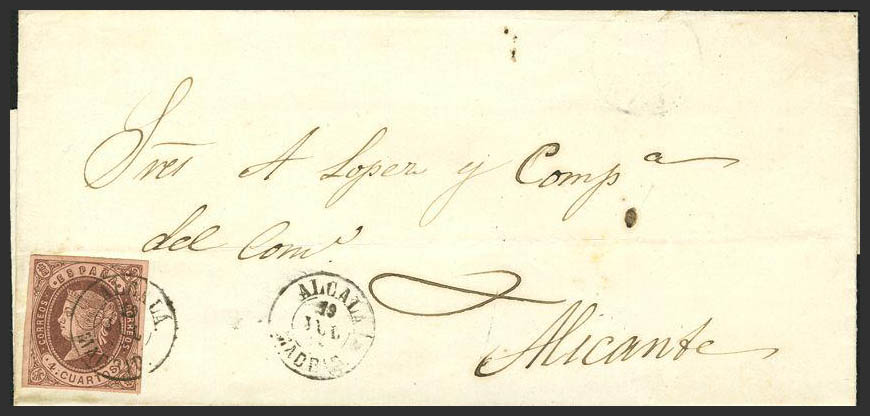 Sres A Lopez y Comp.a
del Com.o
Alicante
ESPAÑA
CORREOS
CORREOS
4 CUARTOS
ALCALA
19
JUL
MADRID